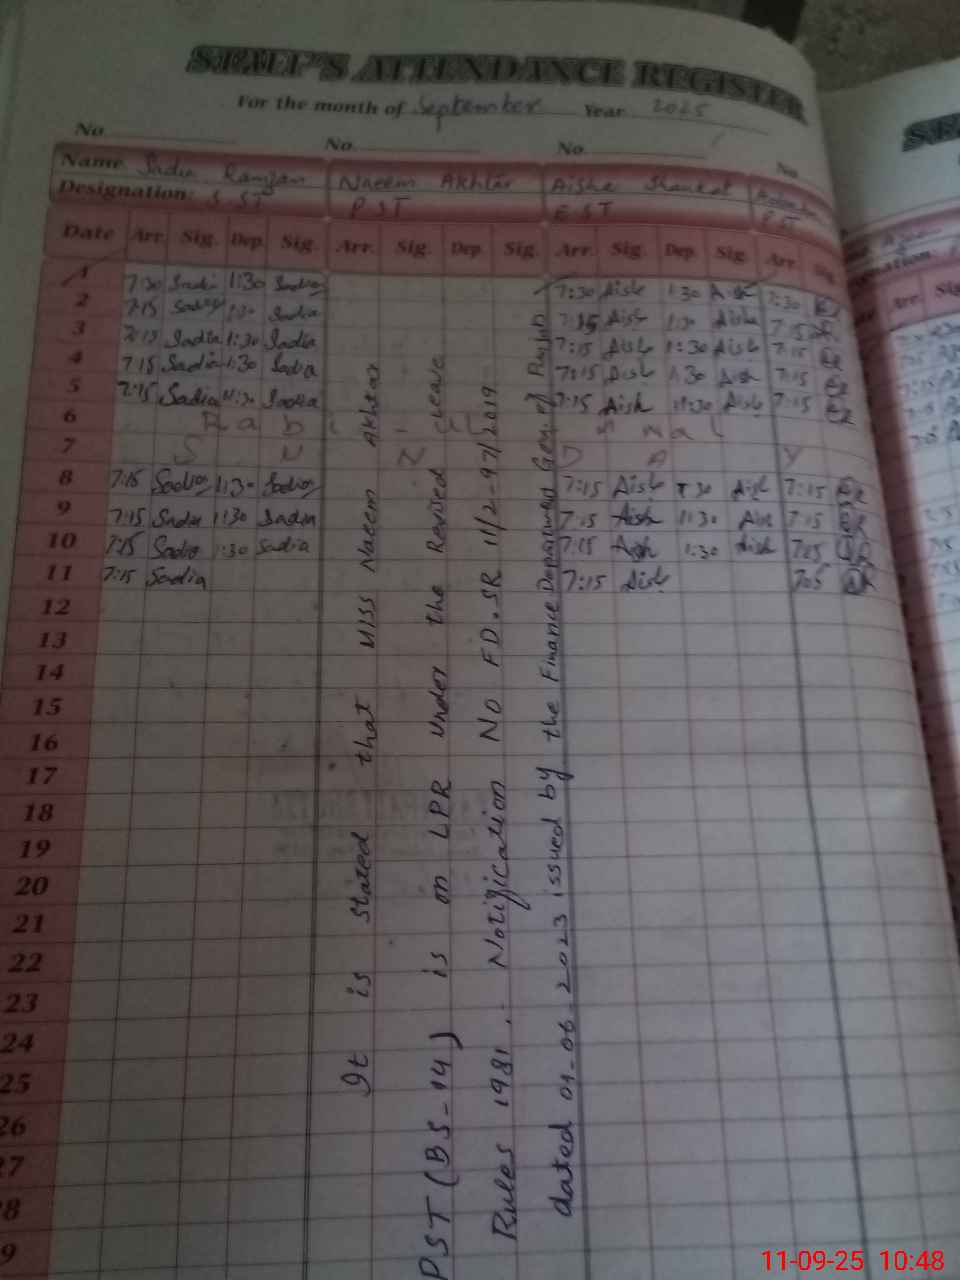 STAFF'S ATTENDANCE REGISTER
For the month of September Year 2025
No. No. No. No.
Name Sadia Ramzan Naeem Akhtar Aisha Shaukat
Designation: S ST PST EST PST
Date Arr. Sig. Dep. Sig. Arr. Sig. Dep. Sig. Arr. Sig. Dep. Sig. Arr. Sig.
1 7:30 Sadia 1:30 Sadia 7:30 Aish 1:30 Aish 7:30
2 7:15 Sadia 1:30 Sadia 7:15 Aish 1:30 Aisha 7:15
3 7:15 Sadia 1:30 Sadia 7:15 Aish 1:30 Aish 7:15
4 7:15 Sadia 1:30 Sadia 7:15 Aish 1:30 Aish 7:15
5 7:15 Sadia 11:30 Sadia 7:15 Aish 11:30 Aish 7:15
6 R a b i
7 S U N D A Y
8 7:15 Sadia 1:30 Sadia 7:15 Aish 1:30 Aish 7:15
9 7:15 Sadia 1:30 Sadia 7:15 Aish 1:30 Aish 7:15
10 7:15 Sadia 1:30 Sadia 7:15 Aish 1:30 Aish 7:15
11 7:15 Sadia 7:15 Aish 7:05
12
13
14
15
16
17
18
19
20
21
22
23
24
25
26
27
28
29
It is stated that Miss Naeem Akhtar
PST (BS-14) is on LPR under the Revised leave
Rules 1981. Notification No FD.SR 11/2-97/2019
dated 01-06-2023 issued by the Finance Department Gov. of Punjab
11-09-25 10:48